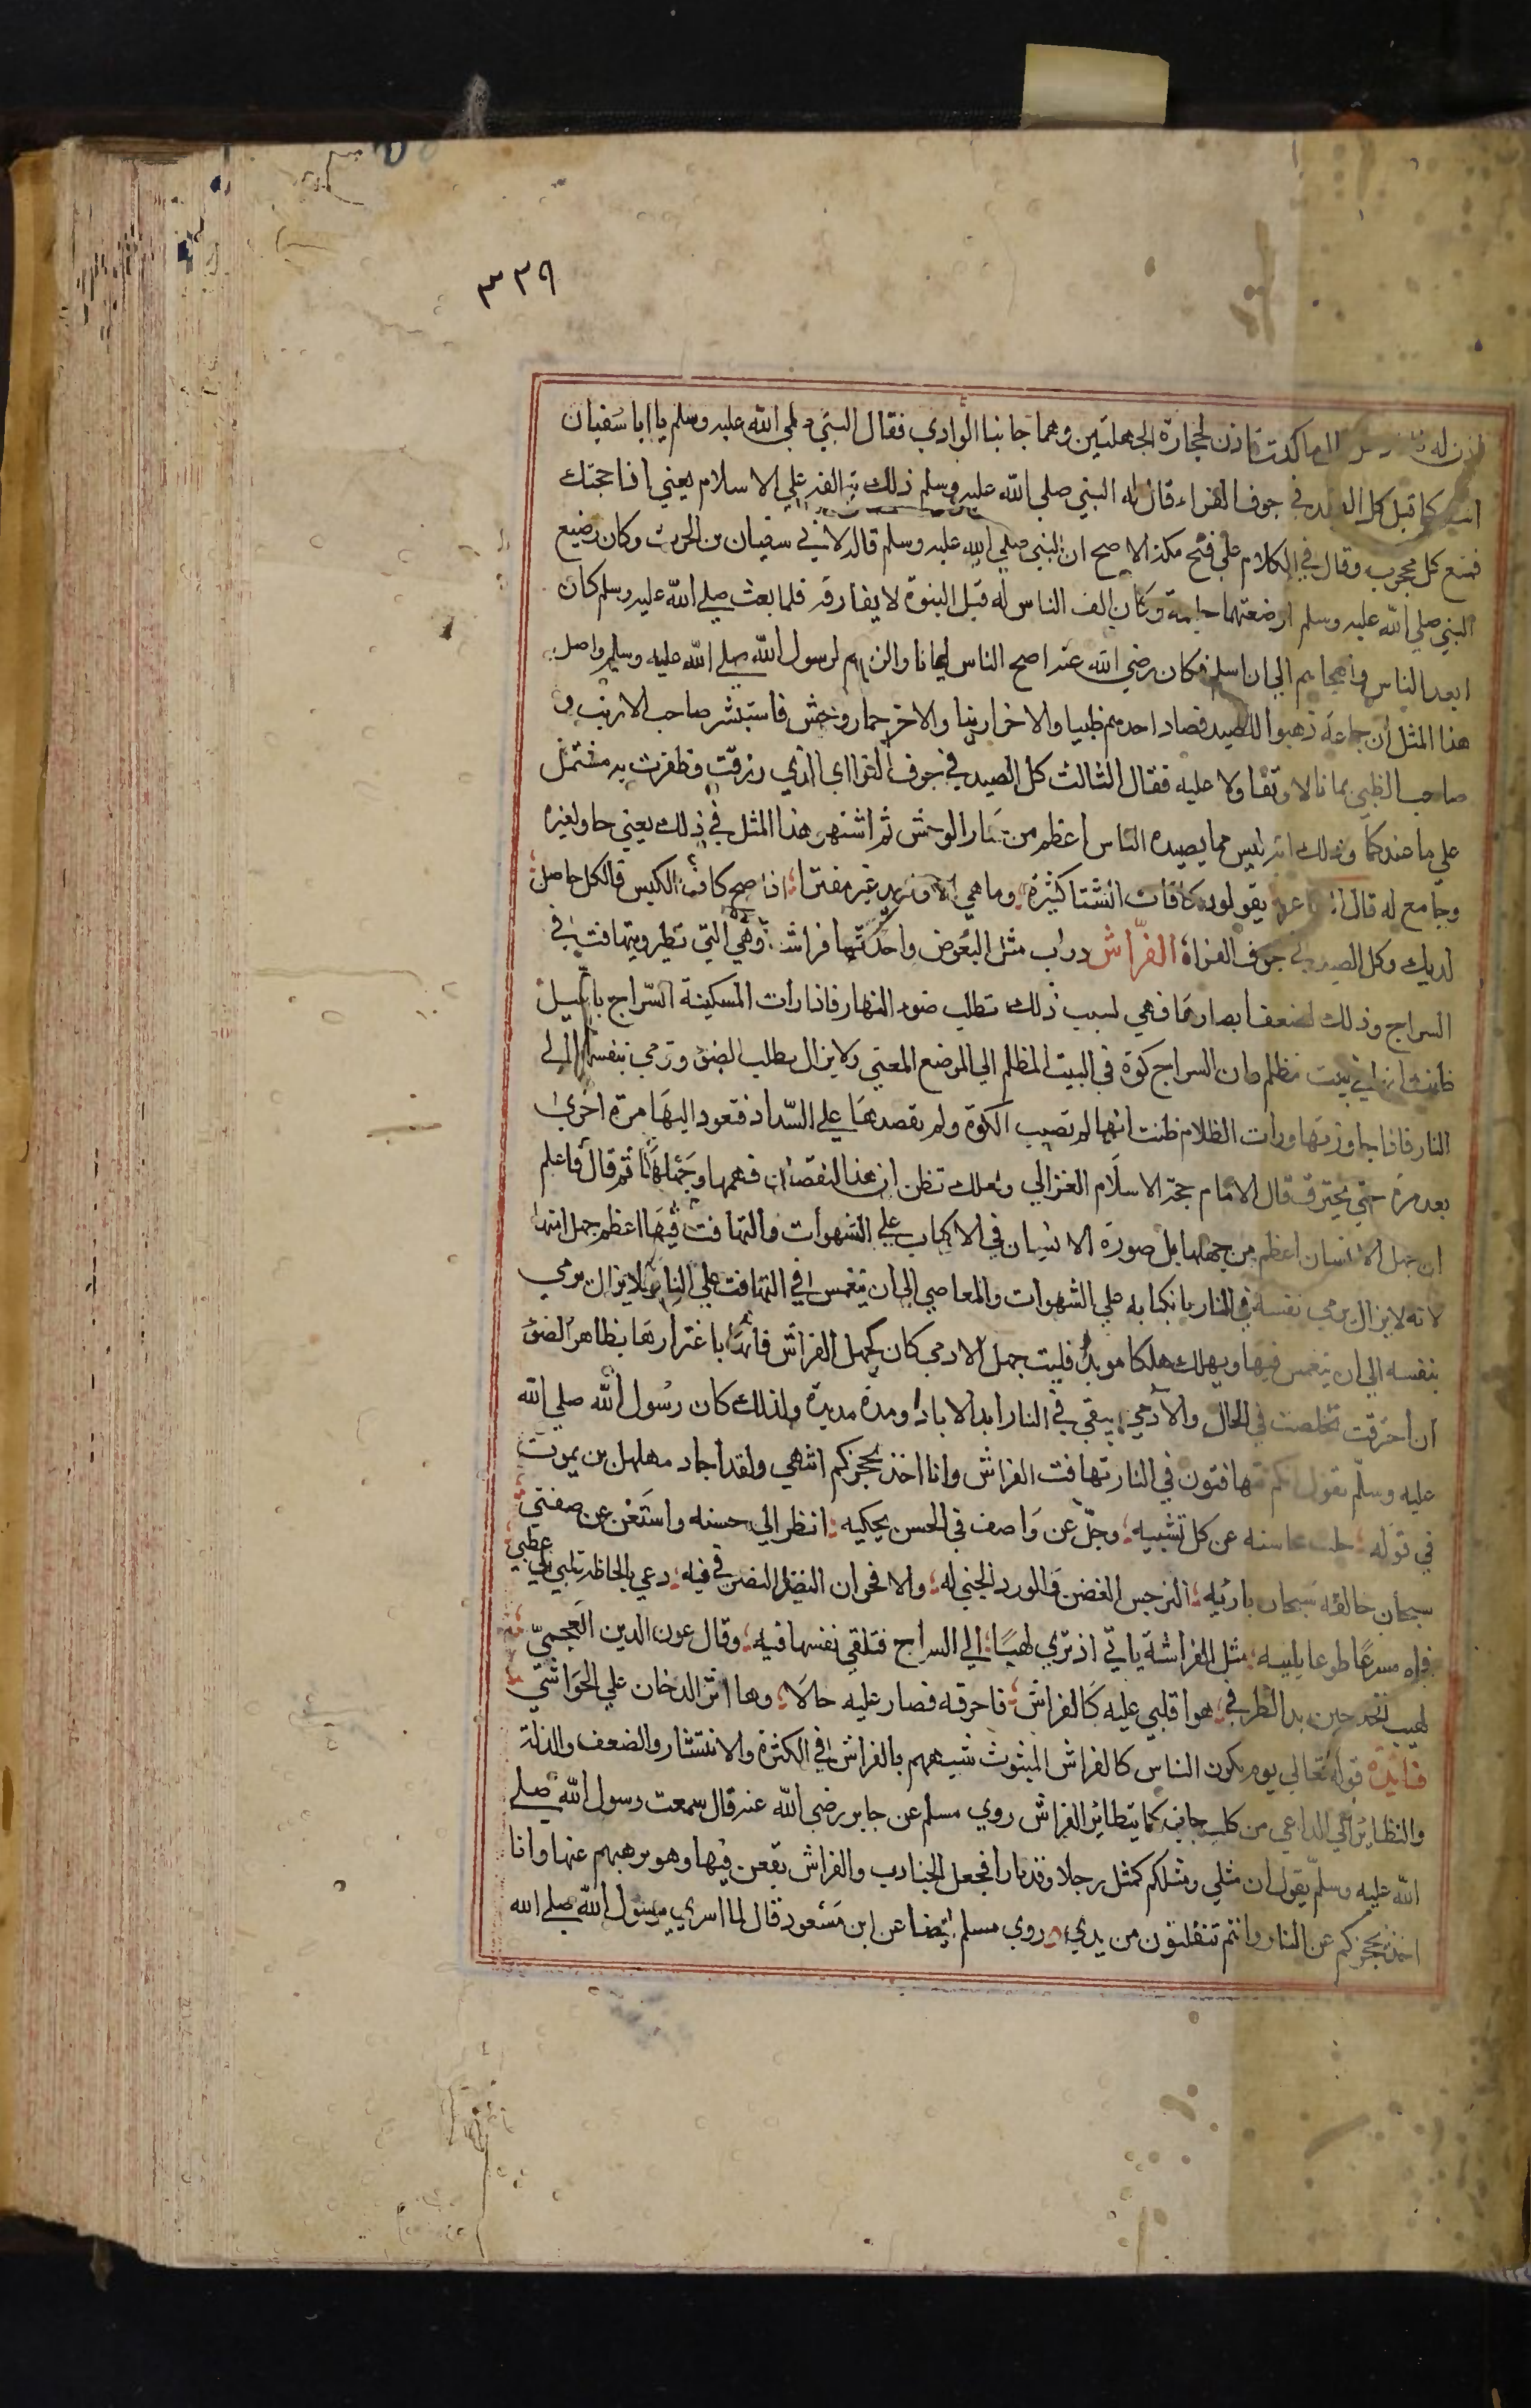 ٣٣٩
اذن له قال ما كدت تاذن لحجارة الجهلتين وهما جانبا الوادي فقال النبي صلي الله عليه وسلم يا ابا سفيان
انت كما قيل كل الصيد في جوف الفراء قال له النبي صلي الله عليه وسلم ذلك يتالفه علي الاسلام يعني اذا حجبتك
قنع كل محجوب وقال في الكلام علي فتح مكة الاصح ان النبي صلي الله عليه وسلم قاله لابي سفيان بن الحرث وكان رضيع
النبي صلي الله عليه وسلم ارضعتهما حليمة وكان الف الناس له قبل النبوة لا يفارقه فلما بعث صلي الله عليه وسلم كان
ابعد الناس واهجاهم الي ان اسلم فكان رضي الله عنه اصح الناس ايمانا والزمهم لرسول الله صلي الله عليه وسلم واصل
هذا المثل ان جماعة ذهبوا للصيد فصاد احدهم ظبيا والاخر ارنبا والاخر حمار وحش فاستبشر صاحب الارنب و
صاحب الظبي بما نالا وتفاولا عليه فقال الثالث كل الصيد في جوف الفرا اي الذي رزقت وظفرت به مشتمل
علي ما عندكما وذلك انه ليس مما يصيده الناس اعظم من حمار الوحش ثم اشتهر هذا المثل في ذلك يعني حاو لغيره
وجامع له قال الشاعر يقولون كافات الشتا كثيرة وما هي الا وفريد غير مفترا اذا صح كاف الكيس فالكل حاصل
لديك وكل الصيد في جوف الفراء الفراش دواب مثل البعوض واحدتها فراشة وهي التي تطير وتتهافت في
السراج وذلك لضعف ابصارها فهي لسبب ذلك تطلب ضوء النهار فاذا رات المسكينة السراج بالليل
ظنت انها في بيت مظلم وان السراج كوة في البيت المظلم الي الموضع المعني ولا يزال يطلب الضوء وترمي بنفسها الي
النار فاذا جاوزتها ورات الظلام ظنت انها لم تصب الكوة ولم تقصدها علي السداد فتعود اليها مرة اخري
بعد مرة حتي يحترق قال الامام حجة الاسلام الغزالي ولعلك تظن ان هذا النقصان فهمها وجهلها ثم قال فاعلم
ان جهل الانسان اعظم من جهلها بل صورة الانسان في الاكباب علي الشهوات والتهافت فيها اعظم جهل انها
لانه لا يزال يرمي نفسه في النار بانكبابه علي الشهوات والمعاصي الي ان ينغمس في التهافت علي النار ولا يزال يرمي
بنفسه الي ان ينغمس فيها ويهلك هلاكا موبدا فليت جهل الادمي كان كجهل الفراش فانها باغترارها بظاهر الضوء
ان احترقت تخلصت في الحال والآدمي يبقي في النار ابد الاباد ومدة مديدة ولذلك كان رسول الله صلي الله
عليه وسلم يقول انكم تتهافتون في النار تهافت الفراش وانا اخذ بحجزكم انتهي ولقد اجاد مهلهل بن يموت
في قوله جلت محاسنه عن كل تشبيه وجل عن واصف في الحسن يحكيه انظر الي حسنه واستغن عن صفتي
سبحان خالقه سبحان باريه النرجس الغض والورد الجني له والاقحوان النضير النضر في فيه دعي بالحاظه قلبي الي عطبي
فجاه مسرعا طوعا يلبيه مثل الفراشة ياتي اذ تري لهبا الي السراج فتلقي نفسها فيه وقال عون الدين العجمي
لهيب الخد حين بدا لطرفي هوا قلبي عليه كالفراش فاحرقه فصار عليه خالا وها اثر الدخان علي الحواشي
فائدة قوله تعالي يوم يكون الناس كالفراش المبثوث شبههم بالفراش في الكثرة والانتشار والضعف والذلة
والتطاير الي الداعي من كل جانب كما يتطاير الفراش روي مسلم عن جابر رضي الله عنه قال سمعت رسول الله صلي
الله عليه وسلم يقول ان مثلي ومثلكم كمثل رجلا وقد نارا فجعل الجنادب والفراش يقعن فيها وهو يرهبهم عنها وانا
اخذ بحجزكم عن النار وانتم تنفلتون من يدي وروي مسلم ايضا عن ابن مسعود قال لما اسري برسول الله صلي الله